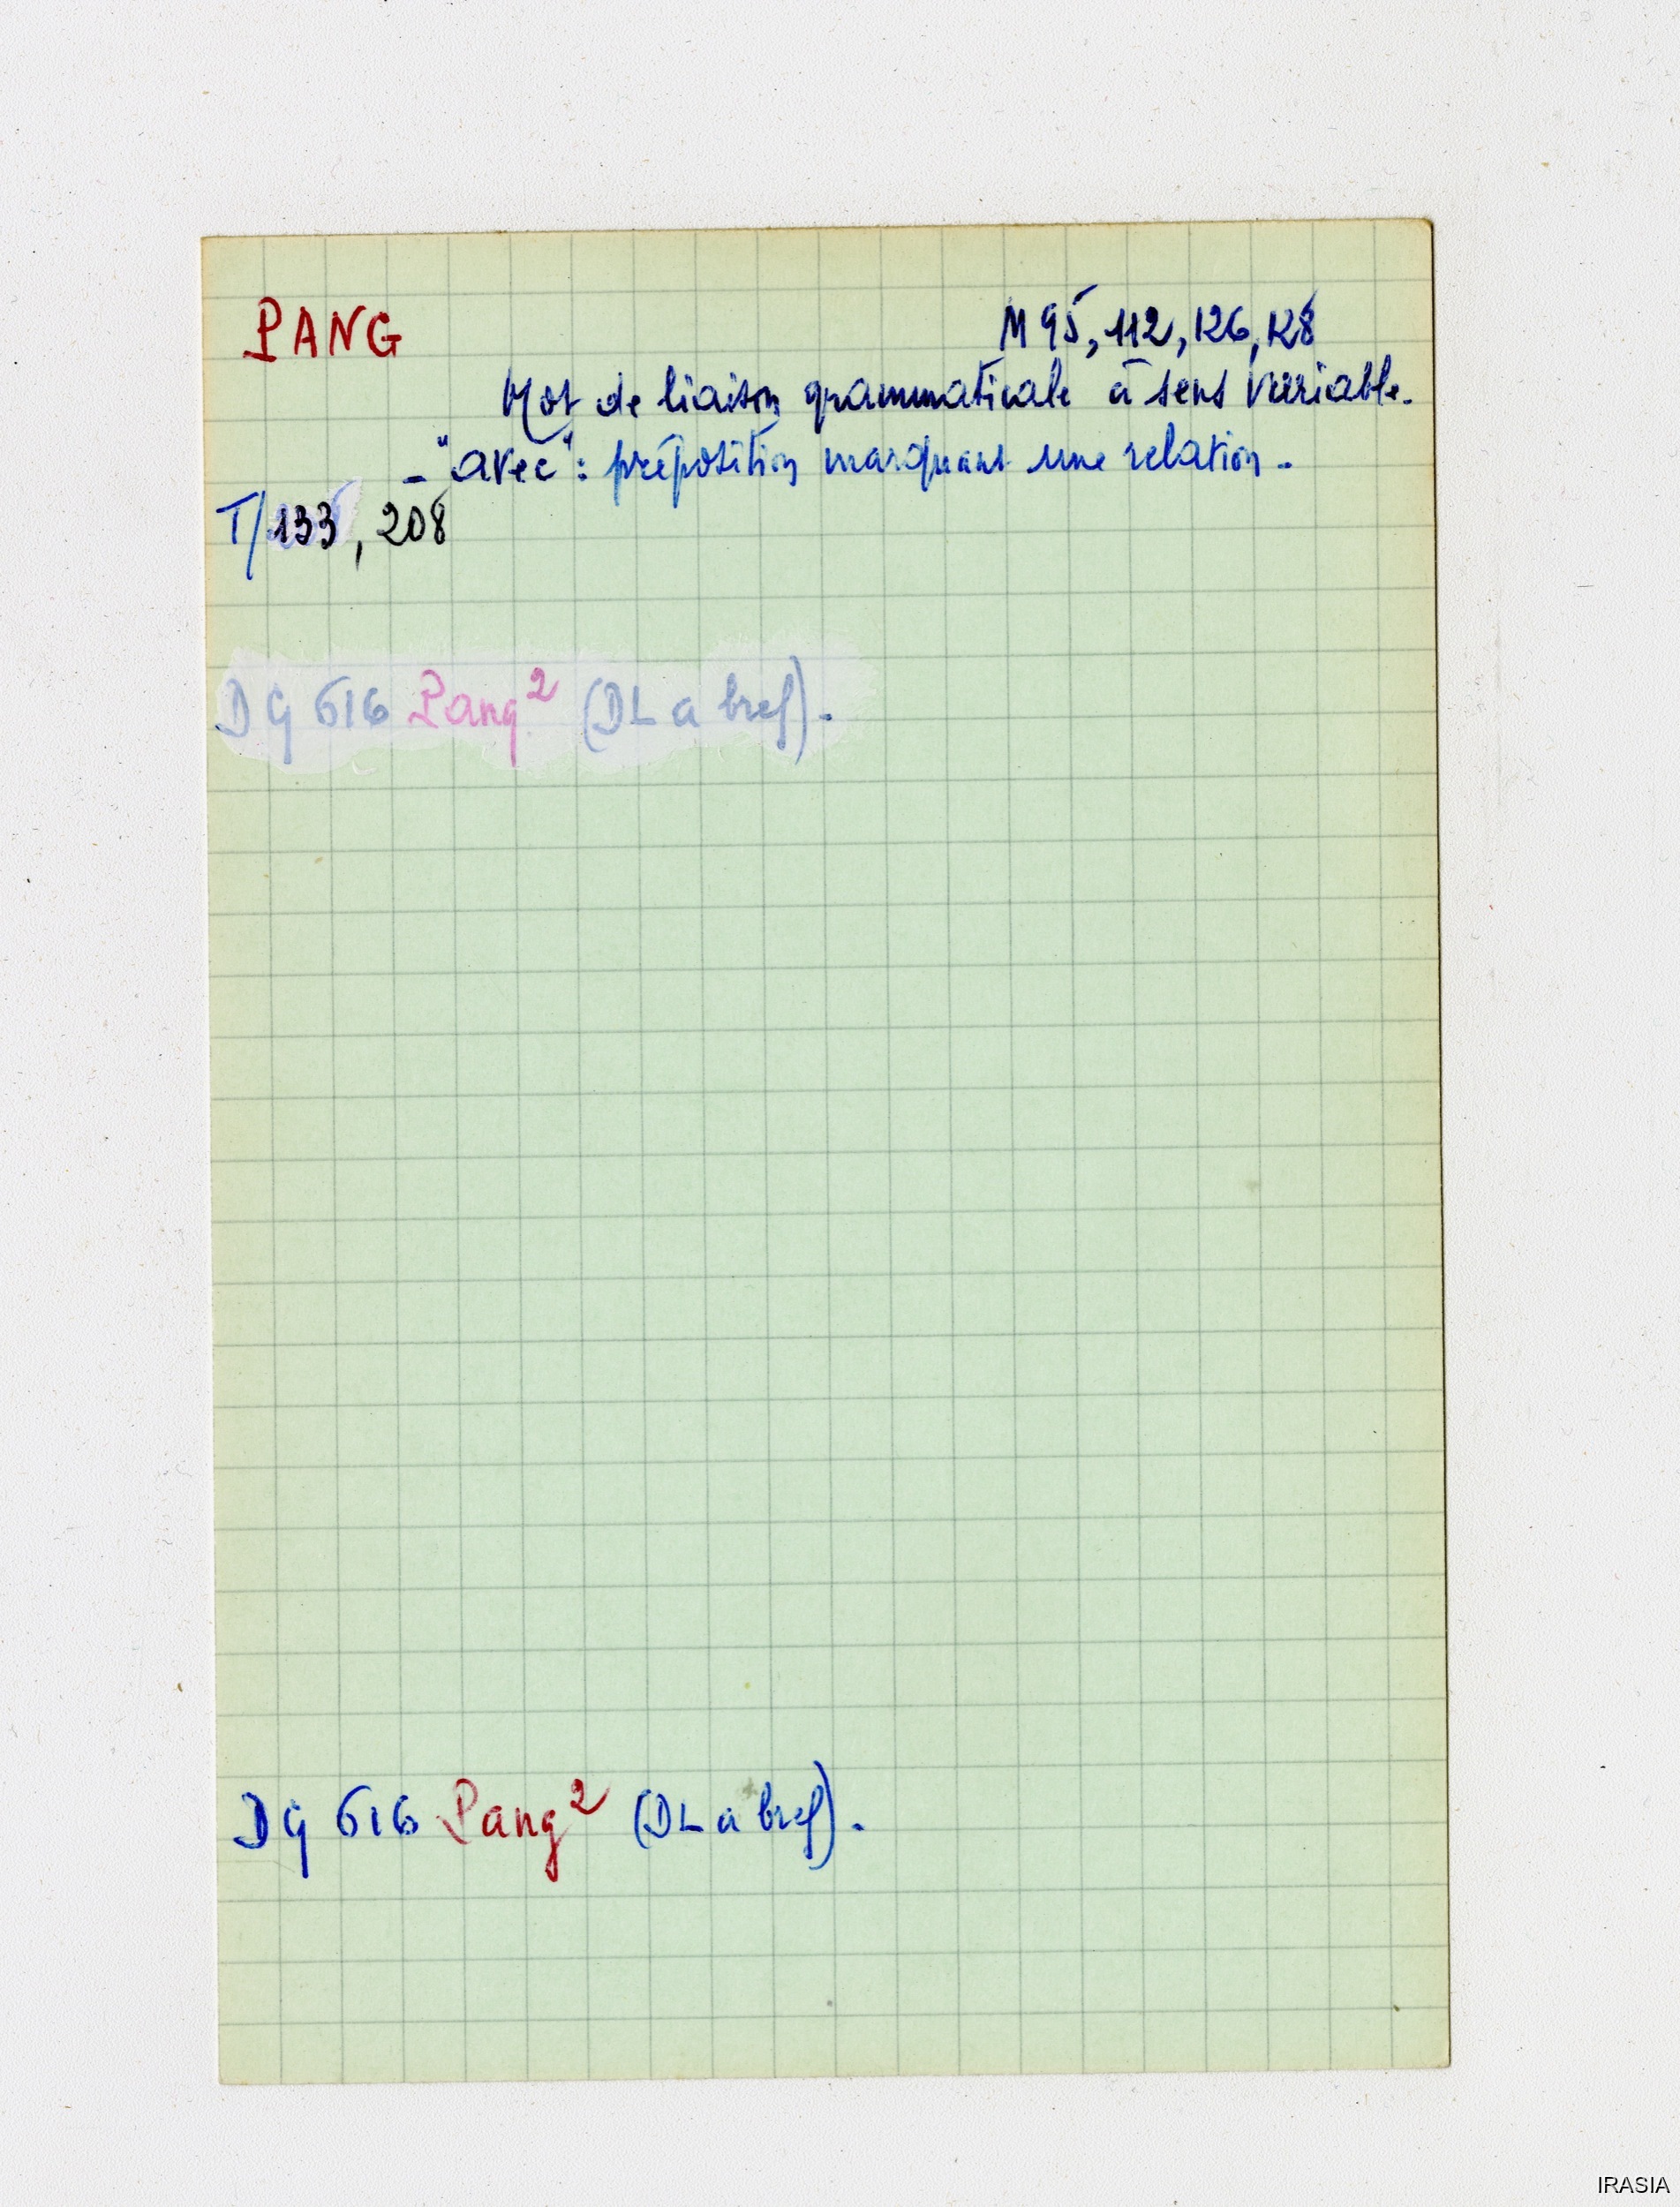 PANG
M 95, 112, 126, 128
Mot de liaison grammaticale à sens variable.
- "avec": préposition marquant une relation -
T/133, 208
DG 616 Pang² (DL a bref).
DG 616 Pang² (DL a bref).
IRASIA